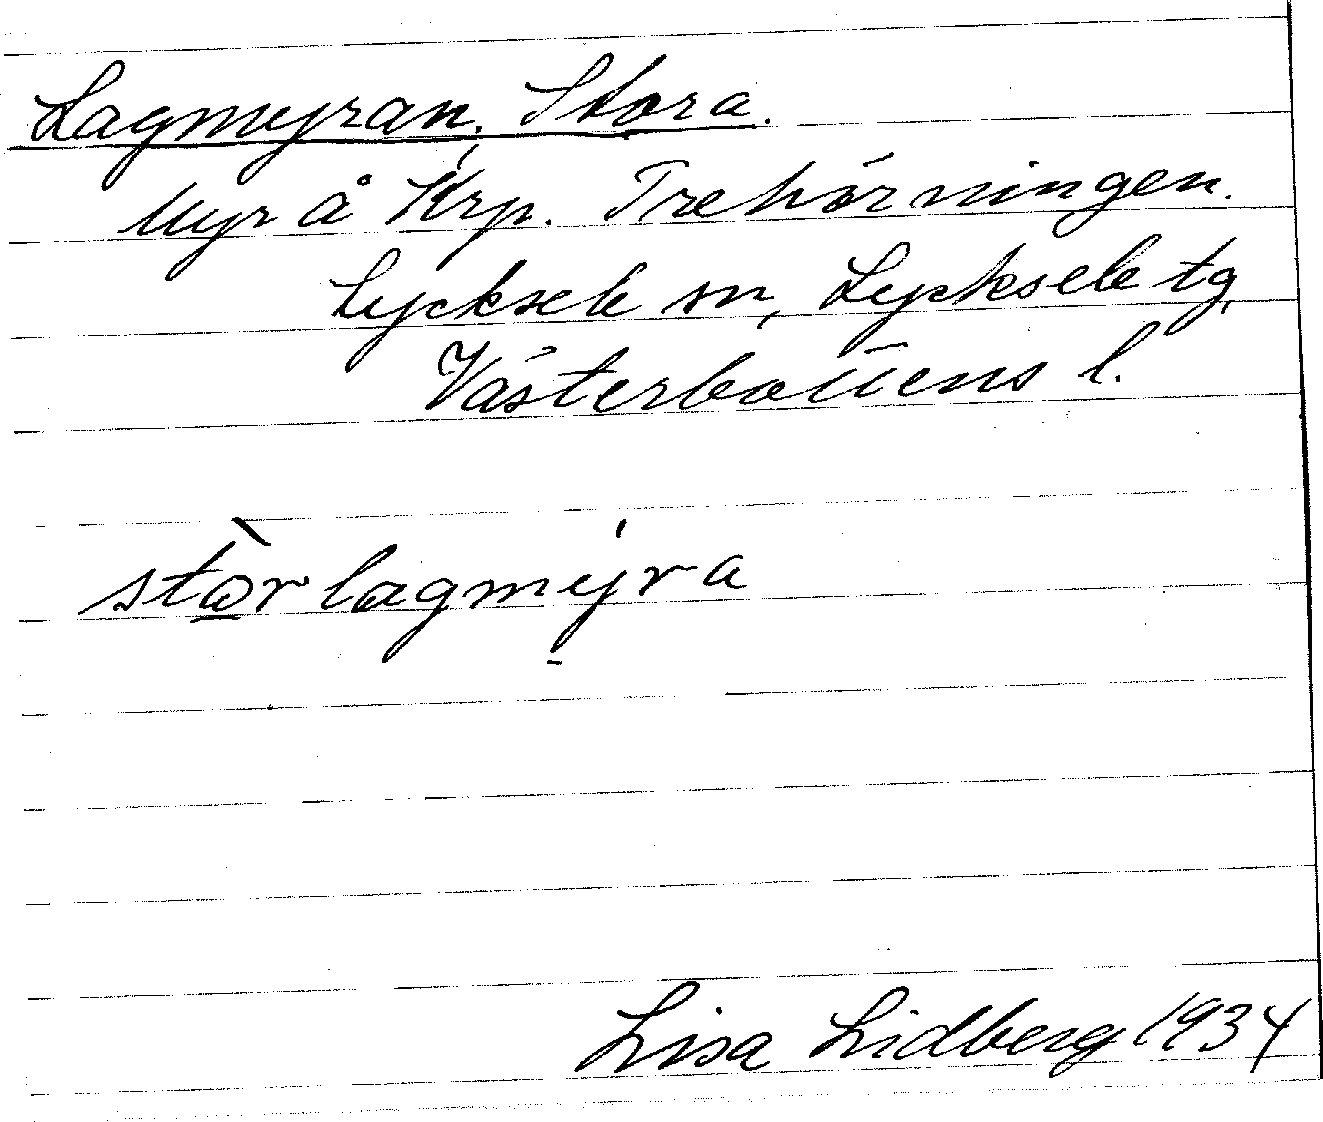 Lagmyran, Stora.
Myr å Krp. Trehörningen.
Lycksele sn, Lycksele tg,
Västerbottens l.
stòrlagmýra
Lisa Lidberg 1934